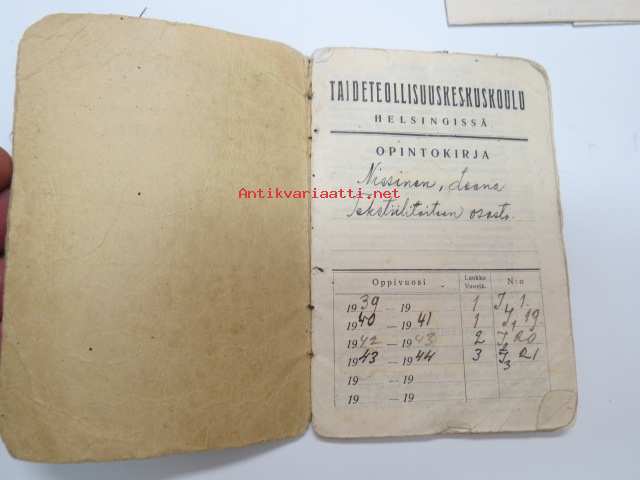 TAIDETEOLLISUUSKESKUSKOULU
HELSINGISSÄ
OPINTOKIRJA
Nissinen, Leena
Tekstiilitaiteen osasto.
Antikvariaatti.net
Oppivuosi Luokka N:o
1939 — 19 1 1.
1940 — 1941 1 19
1942 — 1943 2 20
1943 — 1944 3 21
19 — 19
19 — 19